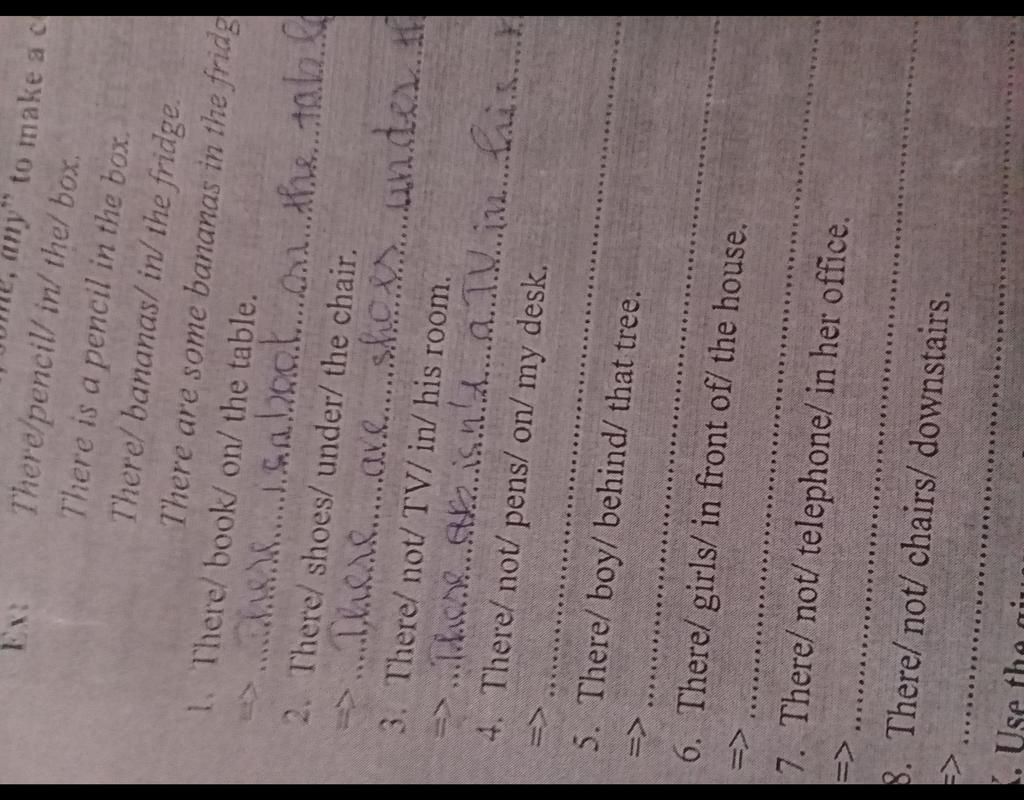 some, any” to make a c
Ex: There/pencil/ in/ the/ box.
There is a pencil in the box.
There/ bananas/ in/ the fridge.
There are some bananas in the fridg
1. There/ book/ on/ the table.
=> There is a book on the tabl
2. There/ shoes/ under/ the chair.
=> There are shoes under th
3. There/ not/ TV/ in/ his room.
=> There isn't a TV in his r
4. There/ not/ pens/ on/ my desk.
=>
5. There/ boy/ behind/ that tree.
=>
6. There/ girls/ in front of/ the house.
=>
7. There/ not/ telephone/ in her office.
=>
8. There/ not/ chairs/ downstairs.
=>
. Use the